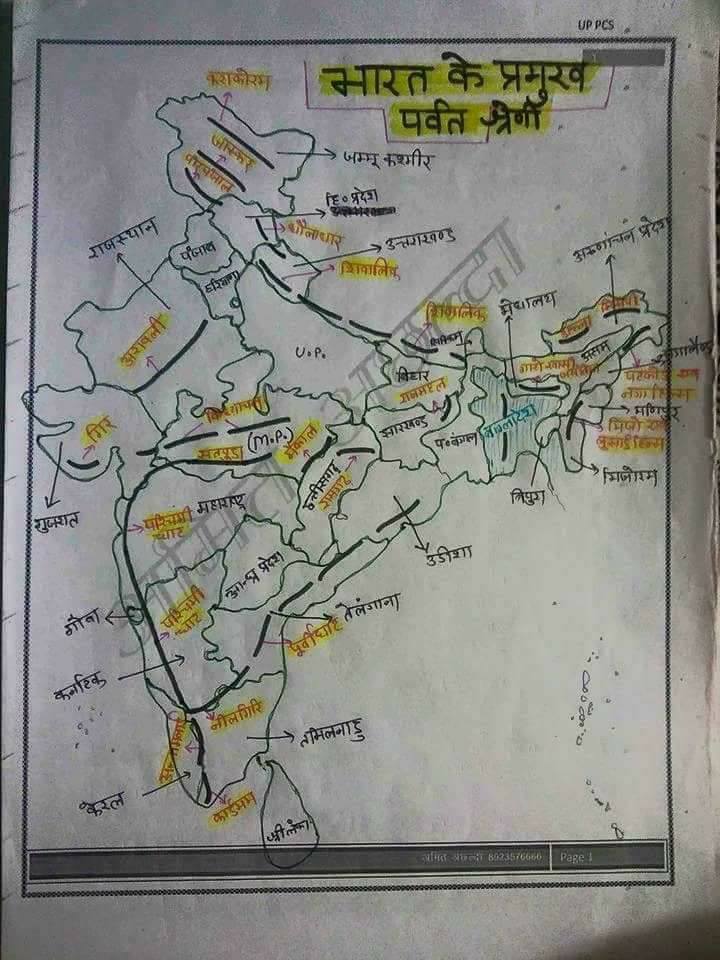 UP PCS
भारत के प्रमुख
पर्वत श्रेणी
काराकोरम
जास्कर
पीरपंजाल
जम्मू कश्मीर
हि० प्रदेश
धौलाधार
राजस्थान
पंजाब
उत्तराखण्ड
शिवालिक
हरियाणा
अरुणांचल प्रदेश
अरावली
शिवालिक
मेघालय
डाफला मिशमी
सिक्किम
U.P.
गारो खासी
असम
नागालैण्ड
बिहार
राजमहल
पटकोई एवं
नागा हिल्स
विन्ध्याचल
(M.P.)
सतपुड़ा
मैकाल
गिर
झारखण्ड
प० बंगाल
बांग्लादेश
मणिपुर
मिजो एवं
लुसाई हिल्स
छत्तीसगढ़
रामगढ़
मिजोरम
त्रिपुरा
गुजरात
पश्चिमी
घाट
महाराष्ट्र
उडीशा
आन्ध्र प्रदेश
गोवा
पश्चिमी
घाट
तेलंगाना
पूर्वी घाट
कर्नाटक
नीलगिरि
तमिलनाडु
अन्नामलाई
केरल
कार्डमम
श्रीलंका
अमित अच्छल्दा 8923576666
Page 1